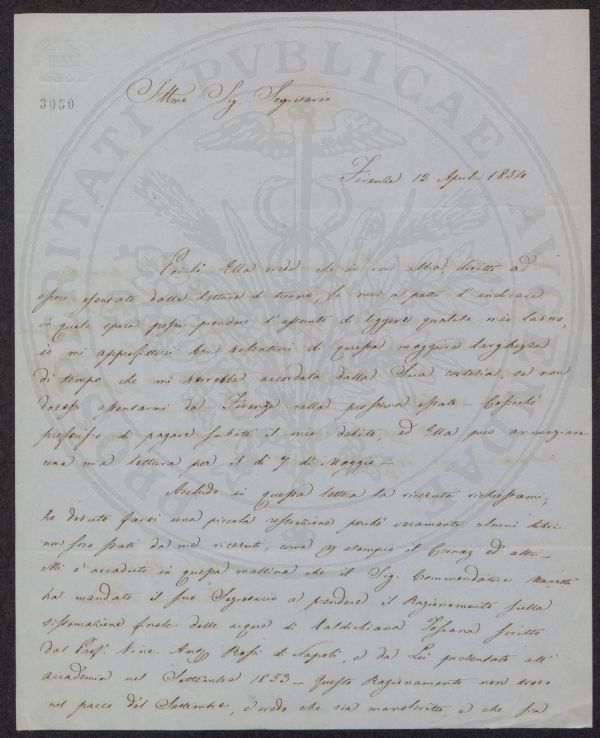 3050
Illmo Sig. Segretario
Firenze 12 Aprile 1854
Poichè Ella crede che io non abbia diritto ad
essere esentato dalle letture di turno, se non a patto d'indicare
in quale epoca possa prendere l'assunto di leggere qualche mio lavoro,
io mi approfitterei ben volentieri di questa maggiore larghezza
di tempo che mi verrebbe accordata dalla Sua cortesia, se non
dovessi assentarmi da Firenze nella prossima estate. Cosicchè
preferisco di pagare subito il mio debito, ed Ella può annunziare
una mia lettura per il dì 7 di Maggio —
Accludo in questa lettera la ricevuta richiestami;
ho dovuto farci una piccola restrizione perchè veramente alcuni libri
non sono stati da me ricevuti, come p. esempio il ed altri —
Mi è accaduto in questa mattina che il Sig. Commendatore
ha mandato il suo Segretario a prendere il Ragionamento sulla
sistemazione finale delle acque di Valdichiana Toscana scritto
dal Prof. Vinc. Ant. Rossi di Napoli, e da Lei presentato all'
Accademia nel Settembre 1853 — Questo Ragionamento non trovo
nel pacco del Settembre, e credo che sia manoscritto, e che sia
PROSPERITATI PVBLICAE AVGENDAE